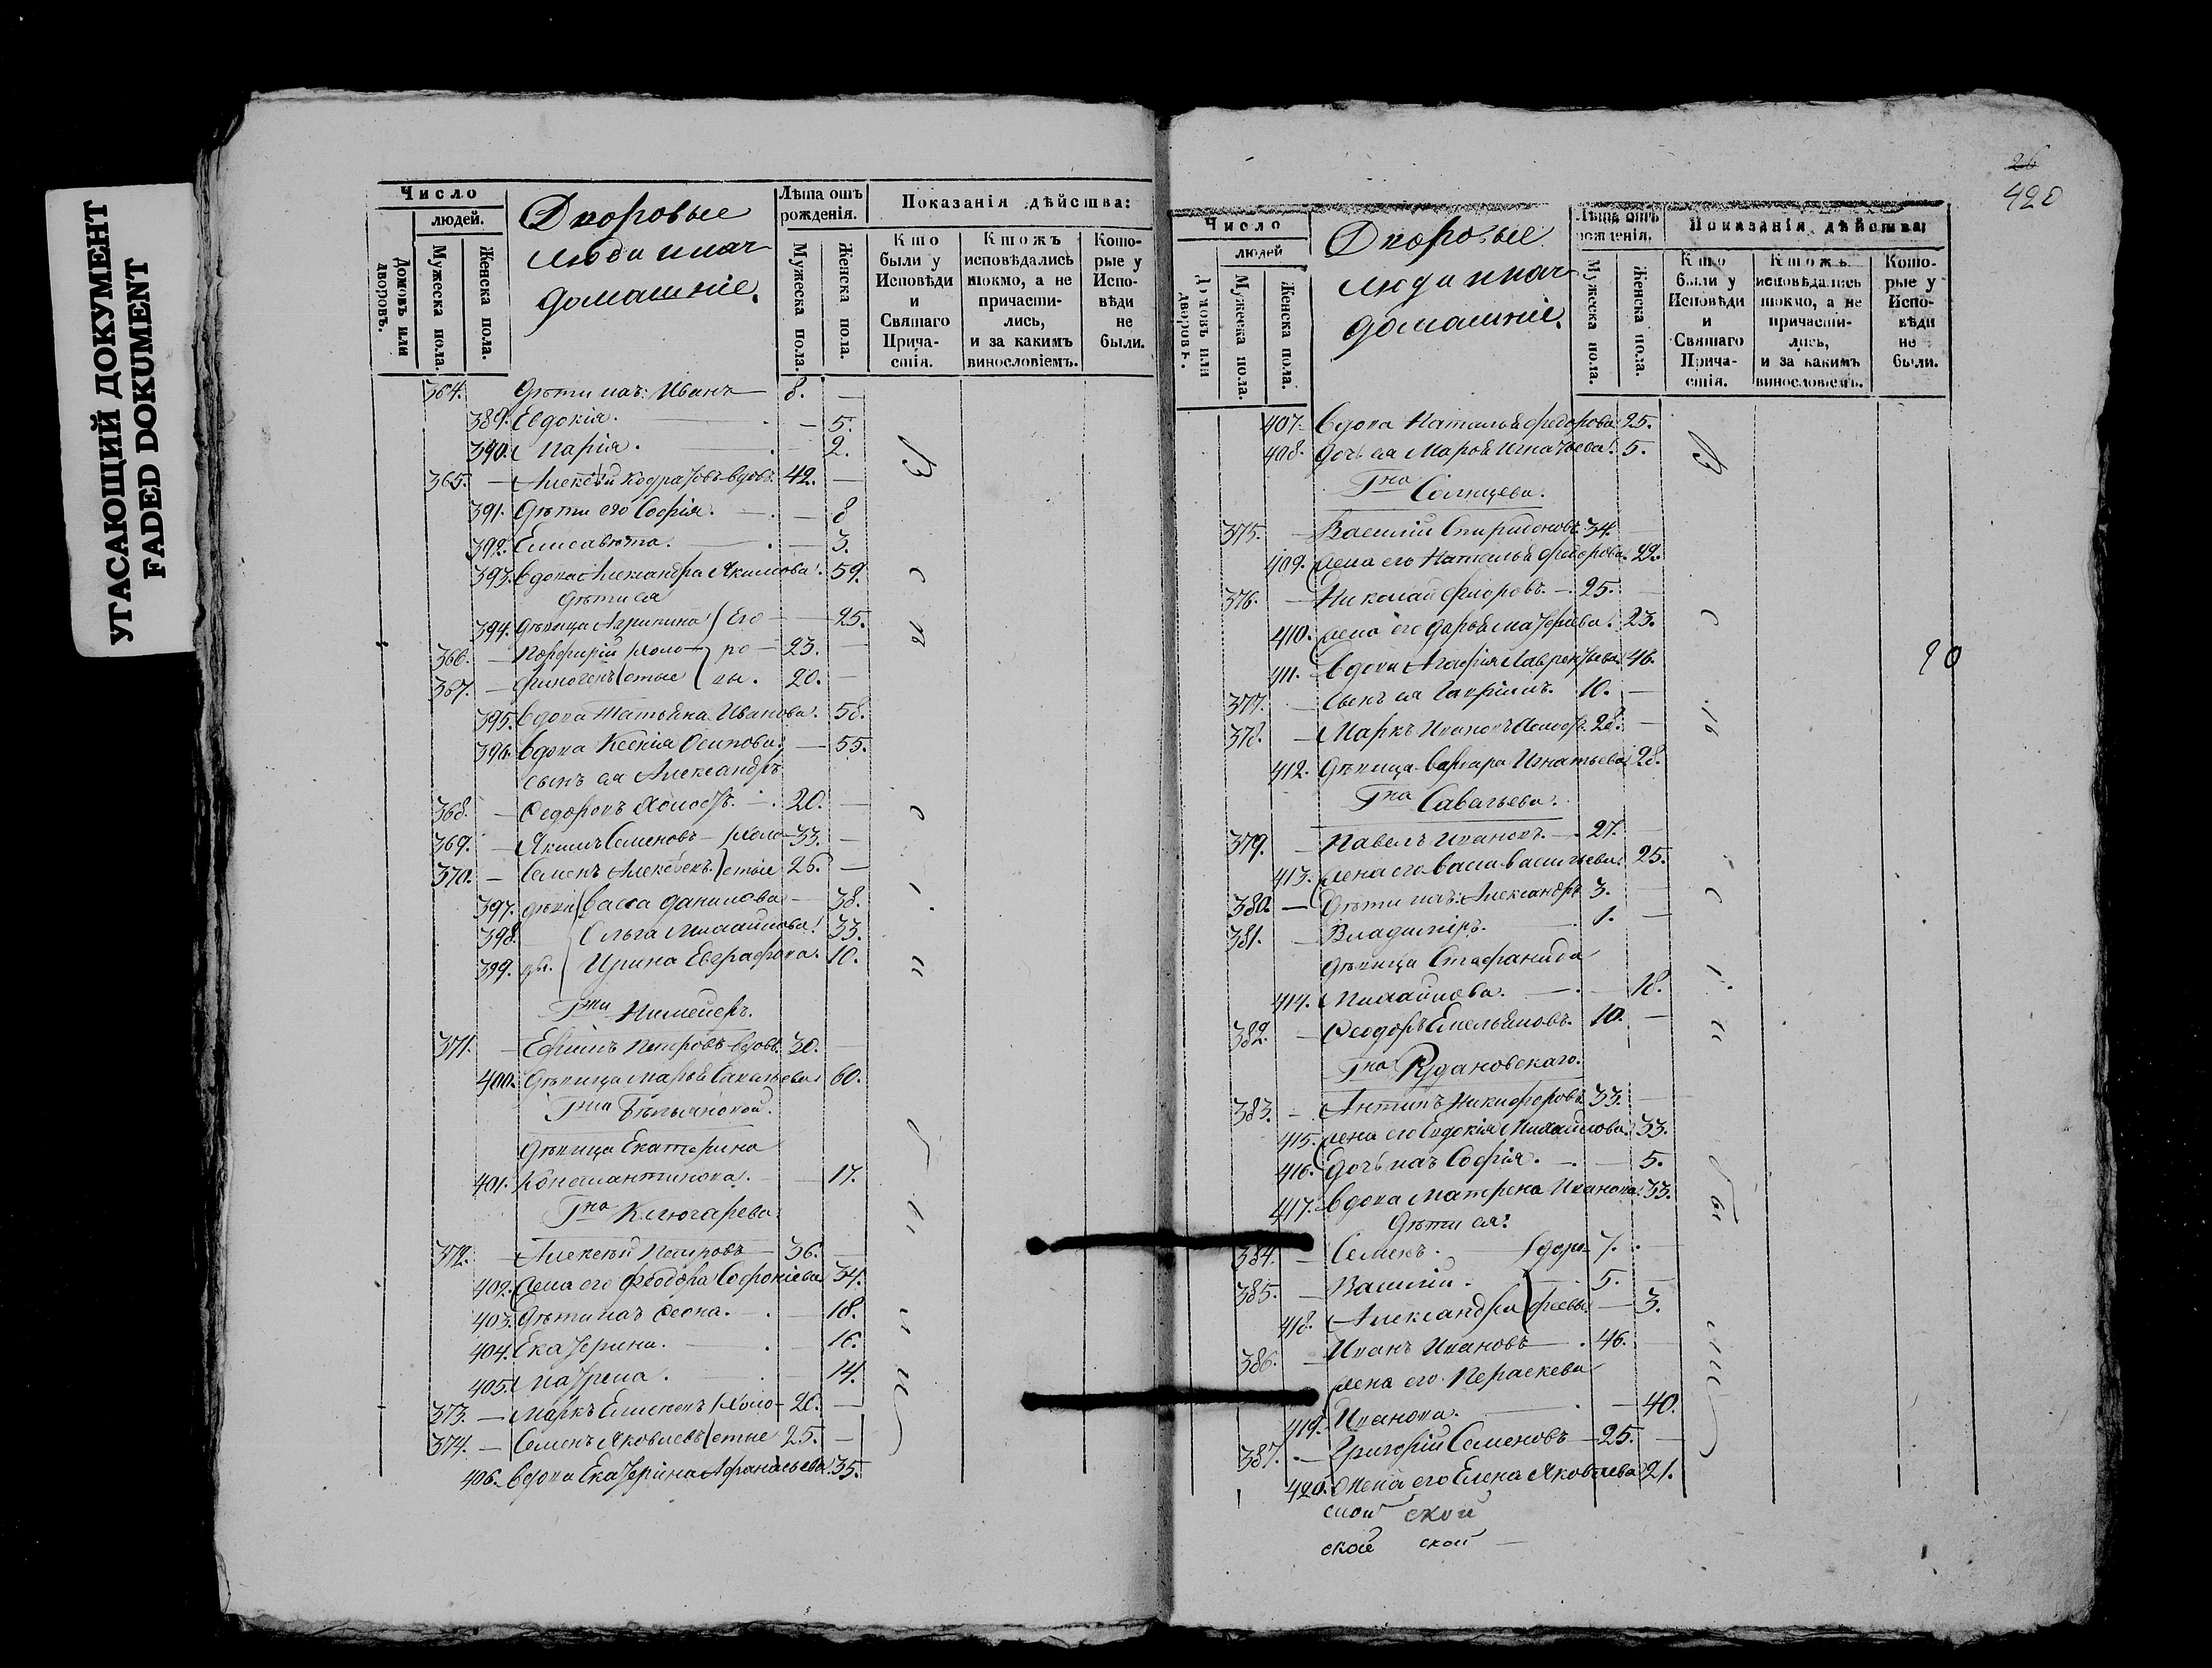 УГАСАЮЩИЙ ДОКУМЕНТ
FADED DOKUMENT
Число
людей.
Домовъ или дворовъ.
Мужеска пола.
Женска пола.
Дворовые
люди и ихъ
домашніе.
Лѣта отъ рожденія.
Мужеска пола.
Женска пола.
Показанія дѣйства:
Кто были у Исповѣди и Святаго Причастія.
Ктожъ исповѣдались токмо, а не причастились, и за какимъ винословіемъ.
Которые у Исповѣди не были.
364. Дѣти ихъ: Иванъ 8. —
389. Евдокія. — 5.
390. Марія. — 2.
365. — Алексѣй вдовъ. 42. —
391. Дѣти его Софія. — 8
392. Елисавета. — 3.
393. Вдова Александра Якимова. 59.
Дѣти ея
394. Дѣвица Агрипина Его — 25.
366. — Порфирій холо ро — 23. —
367. — Финогенъ стые вы. 20. —
395. Вдова Татьяна Иванова. 58.
396. Вдова Ксенія Осипова. — 55.
Сынъ ея Александръ
368. — Ѳедоровъ холостъ. 20. —
369. — Якимъ Семеновъ — холо 33. —
370. — Семенъ Алексѣевъ. стые 26. —
397. дѣви Васса Данилова — 38.
398. Ольга Михайлова. 33.
399. цы. Ирина Евграфова. 10.
Гжи
371. — Ефимъ Петровъ вдовъ. 30. —
400. Дѣвица Марья Савельева. 60.
Гжи
Дѣвица Екатерина
401. Константинова. — 17.
Гна Ключарева.
372. — Алексѣй Петровъ — 36. —
402. Жена его Ѳеодора Софоніева. 34.
403. Дѣти ихъ Ѳеона. — 18.
404. Екатерина. — 16.
405. Матрена. — 14.
373. — Маркъ холо 26. —
374. — Семенъ Яковлевъ стые 25. —
406. Вдова Екатерина Афанасьева. 35.
26
420
Число
людей
Домовъ или дворовъ.
Мужеска пола.
Женска пола.
Дворовые
люди и ихъ
домашніе.
Лѣта отъ рожденія.
Мужеска пола.
Женска пола.
Показанія дѣйства:
Кто были у Исповѣди и Святаго Причастія.
Ктожъ исповѣдались токмо, а не причастились, и за какимъ винословіемъ.
Которые у Исповѣди не были.
407. Вдова Наталья Федорова 25.
408. Дочь ея Марья Игнатьева. 5.
Гна Солнцева.
375. — Василій Спиридоновъ. 34. —
409. Жена его Наталья Федорова. 22.
376. — Николай Федоровъ. — 25. —
410. Жена его Дарья 23.
411. Вдова Агафія Лаврентьева. 46.
377. — Сынъ ея Гавріилъ. 10. —
378. — Маркъ Ивановъ холостъ. 28. —
412. Дѣвица Варвара Игнатьева 28.
Гна
379. — Павелъ Ивановъ. — 27. —
413. Жена его Васса Васильева. 25.
380. — Дѣти ихъ: Александръ 3. —
381. — Владиміръ. 1. —
Дѣвица Стефанида
414. Михайлова. — 18.
382. — Ѳеодоръ Емельяновъ. 10. —
Гна Рудановскаго.
383. — Антипъ Никифоровъ 33. —
415. Жена его Евдокія Михайлова. 33.
416. Дочь ихъ Софія. — 5.
417. Вдова Матрена Иванова. 33.
Дѣти ея:
384. — Семенъ. 7. —
385. — Василій. 5. —
418. Александра — 3.
386. — Иванъ Ивановъ — 46. —
Жена его Пераскева
419. Иванова. — 40.
387. — Григорій Семеновъ — 25. —
420. Жена его Елена Яковлева 21.
ской ской
ской ской —